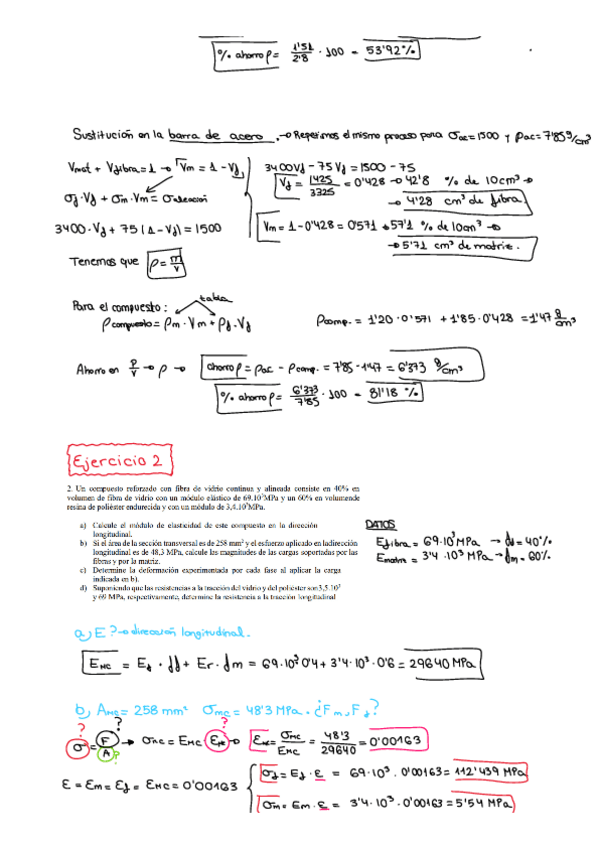 % ahorro ρ = 1'51/2'8 · 100 = 53'92%
Sustitución en la barra de acero → Repetimos el mismo proceso para σac = 1500 y ρac = 7'85 g/cm³
Vmat + Vfibra = 1 → Vm = 1 - Vf
σf·Vf + σm·Vm = σaleación
3400·Vf + 75(1-Vf) = 1500
3400Vf - 75Vf = 1500 - 75
Vf = 1425/3325 = 0'428 → 42'8 % de 10cm³ →
→ 4'28 cm³ de fibra
Vm = 1 - 0'428 = 0'571 → 57'1 % de 10cm³ →
→ 5'71 cm³ de matriz.
Tenemos que ρ = m/v
Para el compuesto: tabla
ρcompuesto = ρm · Vm + ρf · Vf
ρcomp. = 1'20 · 0'571 + 1'85 · 0'428 = 1'47 g/cm³
Ahorro en P/V → ρ → ahorro ρ = ρac - ρcomp. = 7'85 - 1'47 = 6'373 g/cm³
% ahorro ρ = 6'373/7'85 · 100 = 81'18 %
Ejercicio 2
2. Un compuesto reforzado con fibra de vidrio continua y alineada consiste en 40% en
volumen de fibra de vidrio con un módulo elástico de 69.10³MPa y un 60% en volumende
resina de poliéster endurecida y con un módulo de 3,4.10³MPa.
a) Calcule el módulo de elasticidad de este compuesto en la dirección
longitudinal.
b) Si el área de la sección transversal es de 258 mm² y el esfuerzo aplicado en ladirección
longitudinal es de 48,3 MPa, calcule las magnitudes de las cargas soportadas por las
fibras y por la matriz.
c) Determine la deformación experimentada por cada fase al aplicar la carga
indicada en b).
d) Suponiendo que las resistencias a la tracción del vidrio y del poliéster son3,5.10³
y 69 MPa, respectivamente, determine la resistencia a la tracción longitudinal
DATOS
Efibra = 69·10³MPa → ff = 40%
Ematriz = 3'4·10³ MPa → fm = 60%
a) E? → dirección longitudinal.
EMC = Ef · ff + Er · fm = 69·10³·0'4 + 3'4·10³·0'6 = 29640 MPa
b) AMC = 258 mm² σMC = 48'3 MPa. ¿Fm, Ff?
? ? ?
σ = F/A → σMC = EMC · εMC → εMC = σMC/EMC = 48'3/29640 = 0'00163
ε = εm = εf = εMC = 0'00163
σf = Ef · ε = 69·10³ · 0'00163 = 112'439 MPa
σm = Em · ε = 3'4·10³ · 0'00163 = 5'54 MPa